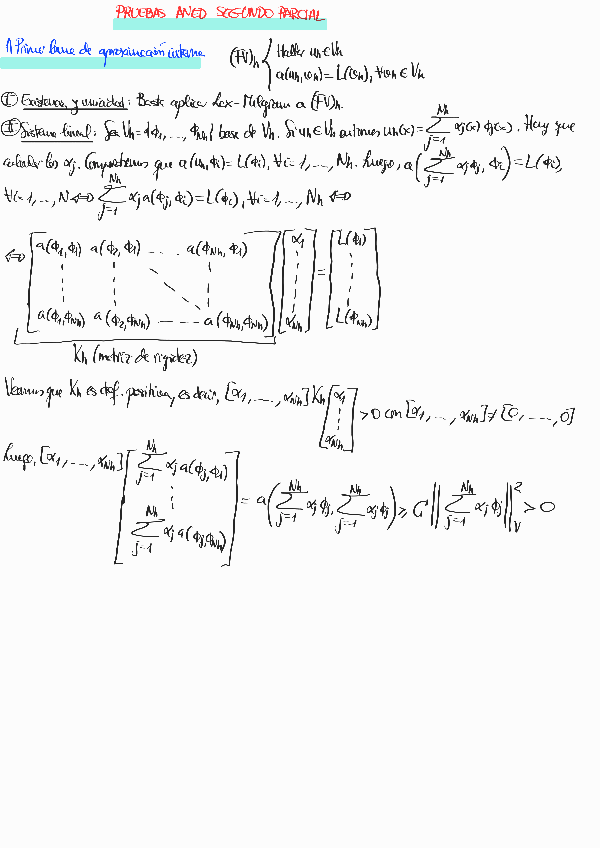 PRUEBAS ANED SEGUNDO PARCIAL
1) Primer lema de aproximación interna (FV)h { Hallar uh ∈ Vh
a(uh, vh) = L(vh), ∀vh ∈ Vh
Ⓘ Existencia y unicidad: Basta aplicar Lax-Milgram a (FV)h.
Ⓘ Sistema lineal: Sea Vh = {ϕ1, ..., ϕNh} base de Vh. Si uh ∈ Vh entonces uh(x) = ∑_{j=1}^{Nh} αj(x) ϕj(x). Hay que
calcular los αj. Comprobemos que a(uh, ϕi) = L(ϕi), ∀i = 1, ..., Nh. Luego, a(∑_{j=1}^{Nh} αj ϕj, ϕi) = L(ϕi),
∀i = 1, ..., N ⇔ ∑_{j=1}^{Nh} αj a(ϕj, ϕi) = L(ϕi), ∀i = 1, ..., Nh ⇔
⇔ [ a(ϕ1, ϕ1) a(ϕ2, ϕ1) ... a(ϕNh, ϕ1) ] [ α1 ] = [ L(ϕ1) ]
[ a(ϕ1, ϕNh) a(ϕ2, ϕNh) ---- a(ϕNh, ϕNh) ] [ αNh ] [ L(ϕNh) ]
Kh (matriz de rigidez)
Veamos que Kh es def. positiva, es decir, [α1, ..., αNh] Kh [ α1 ⋮ αNh ] > 0 con [α1, ..., αNh] ≠ [0, ..., 0]
Luego, [α1, ..., αNh] [ ∑_{j=1}^{Nh} αj a(ϕj, ϕ1) ⋮ ∑_{j=1}^{Nh} αj a(ϕj, ϕNh) ] = a(∑_{j=1}^{Nh} αj ϕj, ∑_{j=1}^{Nh} αj ϕj) ≥ C ‖∑_{j=1}^{Nh} αj ϕj‖²_V > 0